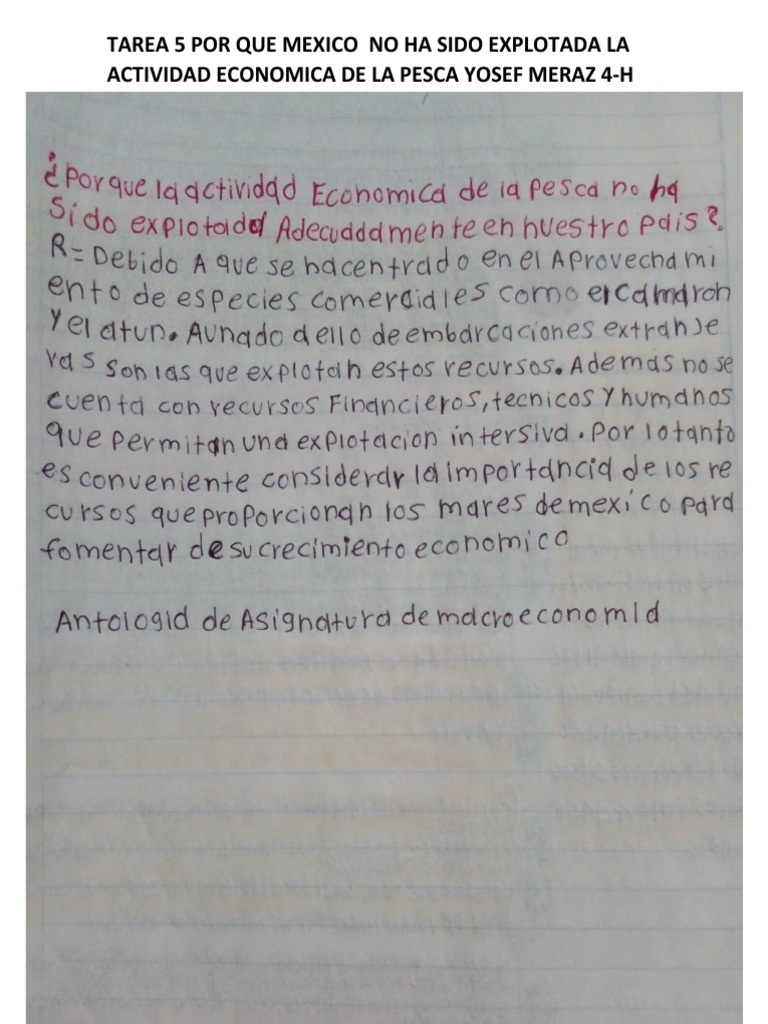 TAREA 5 POR QUE MEXICO  NO HA SIDO EXPLOTADA LA
ACTIVIDAD ECONOMICA DE LA PESCA YOSEF MERAZ 4-H
¿Porque la actividad Economica de la pesca no ha
Sido explotada Adecuadamente en nuestro pais?
R= Debido A que se ha centrado en el Aprovechami
ento de especies comerciales como el camaron
Y el atun. Aunado a ello de embarcaciones extranje
ras son las que explotan estos recursos. Ademas no se
cuenta con recursos Financieros, tecnicos Y humanos
que permitan una explotacion intersiva. Por lo tanto
es conveniente considerar la importancia de los re
cursos que proporcionan los mares de mexico para
fomentar de su crecimiento economico
Antologia de Asignatura de macroeconomia